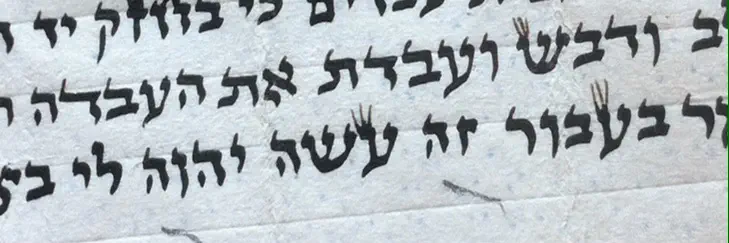 עבדים כי בחזק יד
ודבש ועבדת את העבדה
בעבור זה עשה יהוה לי